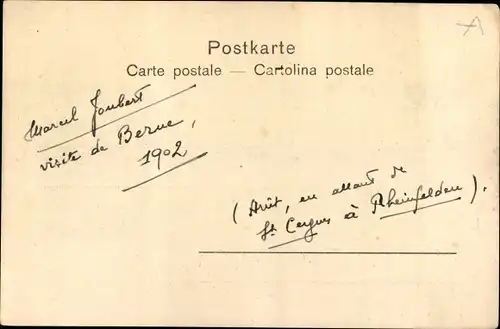 Postkarte
Carte postale — Cartolina postale
Marcel Joubert
visite de Berne,
1902
(Arrêt, en allant de
St Cergues à Rheinfelden).